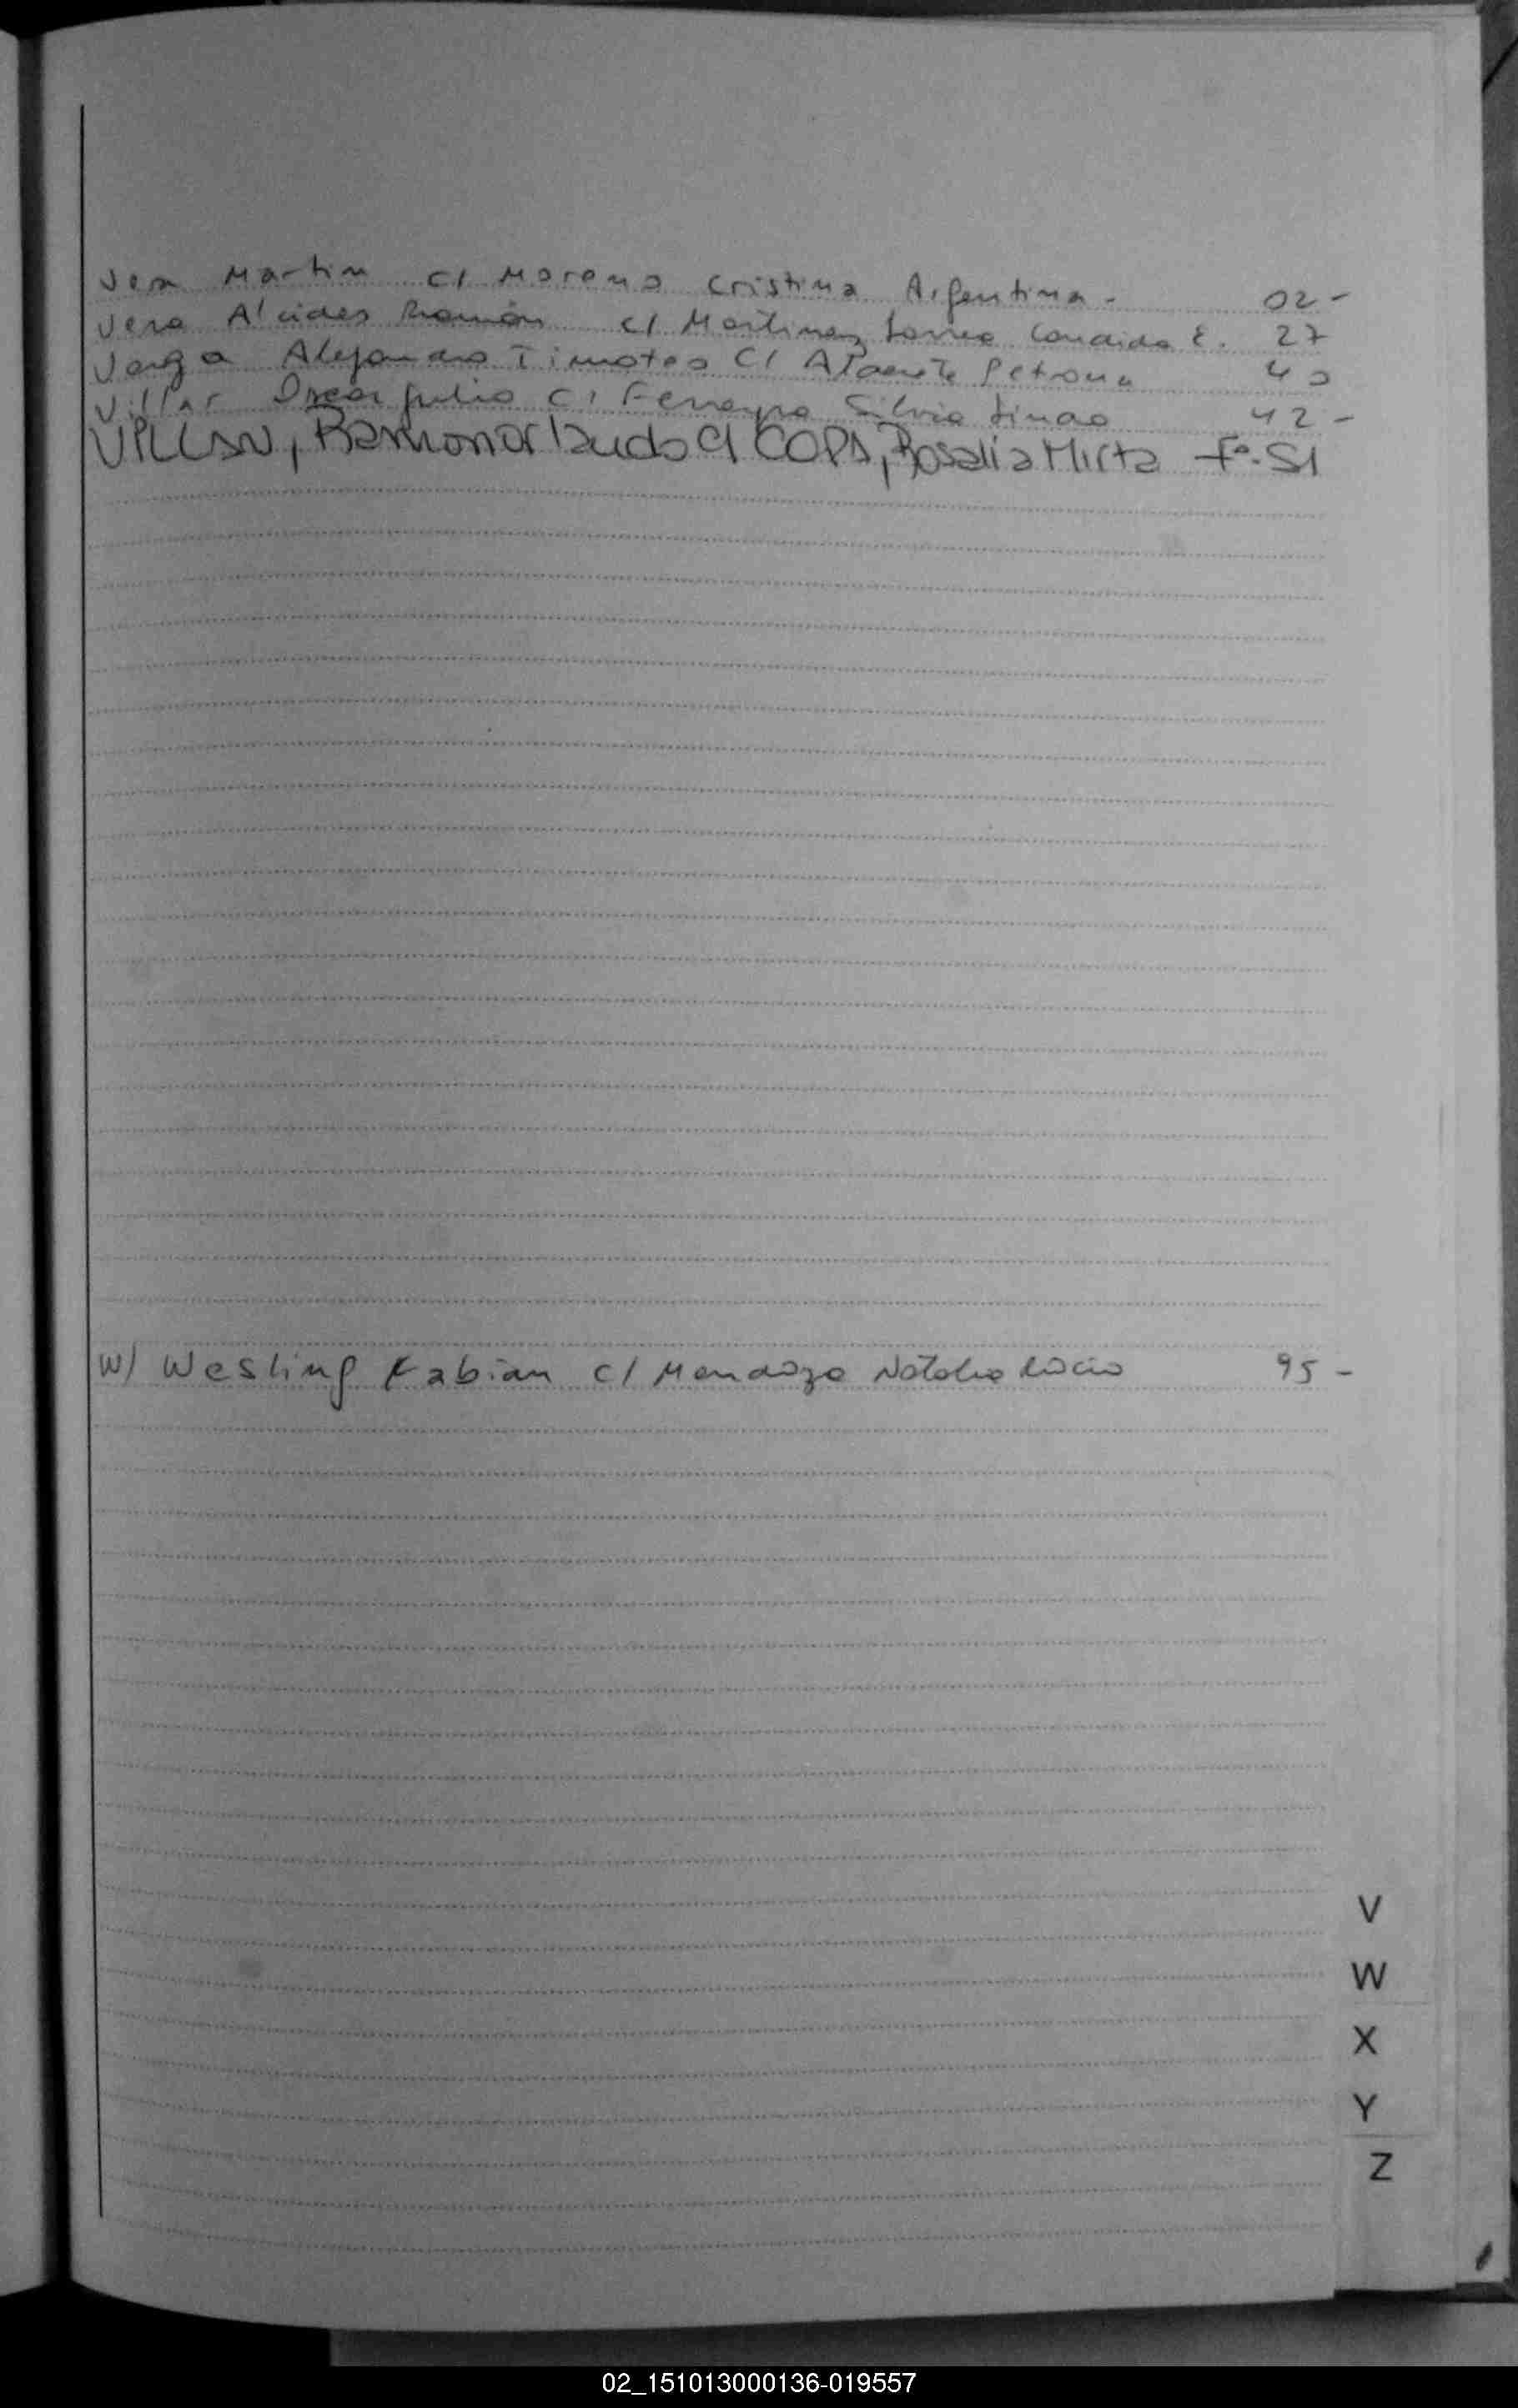 Vera Martin C/ Moreno Cristina Argentina - 02-
Vera Alcides Ramón C/ Martinez Candida E. 27
Alejandro Timoteo C/ Petrona 40
Villar Oscar Julio C/ Ferreyra Silvia 42-
Ramon C/ Rosalia Mirta Fº. 51
W/ Wesling Fabian C/ Mendoza Natalia 95 -
V
W
X
Y
Z
02_151013000136-019557